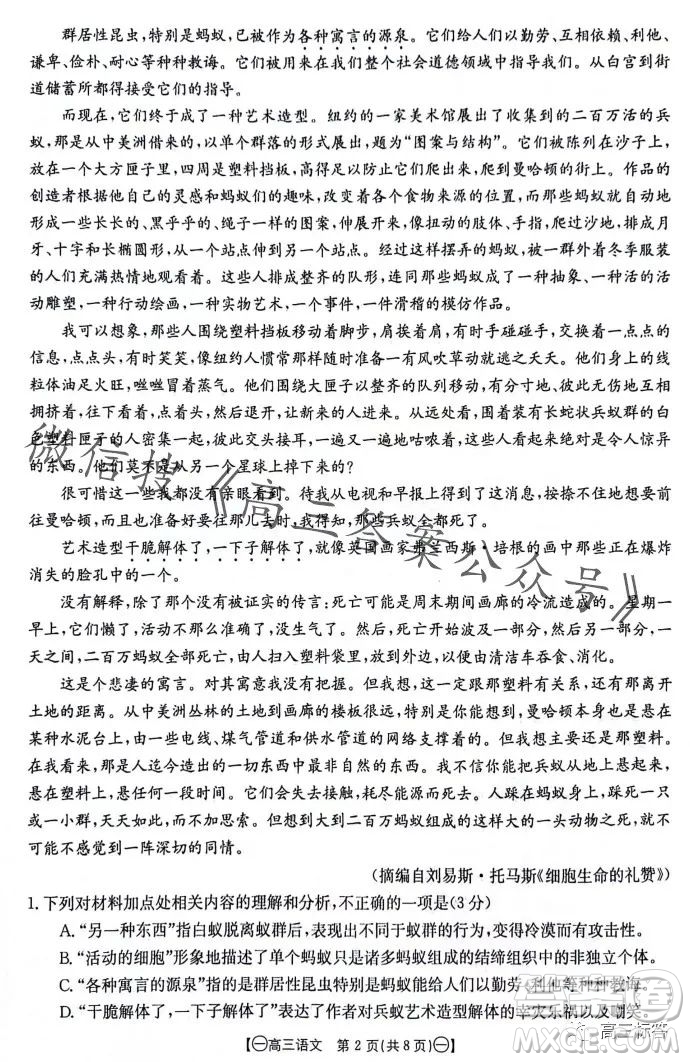 群居性昆虫，特别是蚂蚁，已被作为各种寓言的源泉。它们给人们以勤劳、互相依赖、利他、
谦卑、俭朴、耐心等种种教诲。它们被用来在我们整个社会道德领域中指导我们。从白宫到街
道储蓄所都得接受它们的指导。
而现在，它们终于成了一种艺术造型。纽约的一家美术馆展出了收集到的二百万活的兵
蚁，那是从中美洲借来的，以单个群落的形式展出，题为“图案与结构”。它们被陈列在沙子上，
放在一个大方匣子里，四周是塑料挡板，高得足以防止它们爬出来，爬到曼哈顿的街上。作品的
创造者根据他自己的灵感和蚂蚁们的趣味，改变着各个食物来源的位置，而蚂蚁就自动地
形成一些长长的、黑乎乎的、绳子一样的图案，伸展开来，像扭动的肢体、手指，爬过沙地，排成月
牙、十字和长椭圆形，从一个站点伸到另一个站点。经过这样摆弄的蚂蚁，被一群衣着冬季服装
的人们充满热情地观看着。这些人排成整齐的队形，连同那些蚂蚁成了一种抽象、一种活的活
动雕塑，一种行动绘画，一种实物艺术，一个事件，一件滑稽的模仿作品。
我可以想象，那些人围绕塑料挡板移动着脚步，肩挨着肩，有时手碰碰手，交换着一点点的
信息，点点头，有时笑笑，像纽约人惯常那样随时准备着一有风吹草动就逃之夭夭。他们身上的线
粒体油足火旺，咝咝冒着蒸气。他们围绕大匣子以整齐的队列移动，有分寸地、彼此信任地互相
拥挤着，往下看看，点点头，然后退出，让新来的人进来。从远处看，围着长蛇状兵蚁群的白
色塑料匣子的人密集一起，彼此交头接耳，一遍又一遍地咕哝着，这些人似乎是一种令人惊异
的东西。他们莫不是从另一个星球上掉下来的？
很可惜这一切我都没有亲眼看到。待我从电视和早报上得到了这消息，按捺不住地要到
曼哈顿，而且也准备好要往那儿去时，我得知，那些兵蚁全都死了。
艺术造型干脆解体了，一下子解体了，就像英国画家弗兰西斯·培根的画中那些正在爆炸
消失的脸孔中的一个。
没有解释，除了那个没有被证实的传言：死亡可能是周末期间画廊的冷流造成的。星期一
早上，它们懒了，活动不那么准确了，没生气了。然后，死亡开始波及一部分，然后另一部分，一
天之间，二百万蚂蚁全部死亡，由人扫入塑料袋里，放在外面，由清洁车吞食、消化。
这是个悲凄的寓言。对其寓意我没有把握。但我想，这一定跟那塑料有关系，还有那离开
土地的距离。从中美洲丛林的土地到画廊的楼板很远，特别是你想到，曼哈顿本身也是悬在
某种水泥台上，由一些电线、煤气管道和供水管道的网络支撑着的。但我想，主要是那塑料，在
我看来，那是人迄今造出的一切东西中最非自然的东西。我不相信，你能把兵蚁从土地上拿开，
悬在塑料上，任凭任何一段时间。它们会失去接触，耗尽能量，会死于断电。人踩在蚂蚁身上，
或一小群，大踏步而行，而不加思索。但想到大到二百万蚂蚁组成的一头动物之死，我就不能不
然而感觉到一阵深切的同情。
（摘编自刘易斯·托马斯《细胞生命的礼赞》）
1.下列对材料加点处相关内容的理解和分析，不正确的一项是（3分）
A.“另一种东西”指白蚁脱离蚁群后，表现出不同于蚁群的行为，变得冷漠而有攻击性。
B.“活动的细胞”形象地描述了单个蚂蚁只是诸多蚂蚁组成的缔结组织中的非独立个体。
C.“各种寓言的源泉”是指群居性昆虫特别是蚂蚁，给人们以勤劳、利他等种种教诲。
D.“干脆解体了，一下子解体了”表达了作者对兵蚁艺术造型解体的幸灾乐祸以及嘲笑。
高三语文 第2页（共8页）
微信搜《高三答案公众号》
高三标答
MXQE.COM